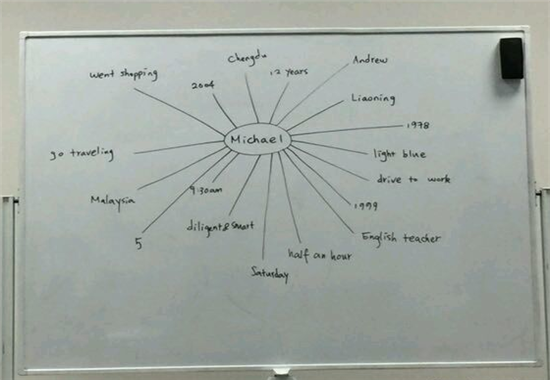 Chengdu
Andrew
went shopping
2004
12 years
Liaoning
Michael
1978
go traveling
light blue
drive to work
Malaysia
9:30am
1999
diligent & smart
5
English teacher
half an hour
Saturday